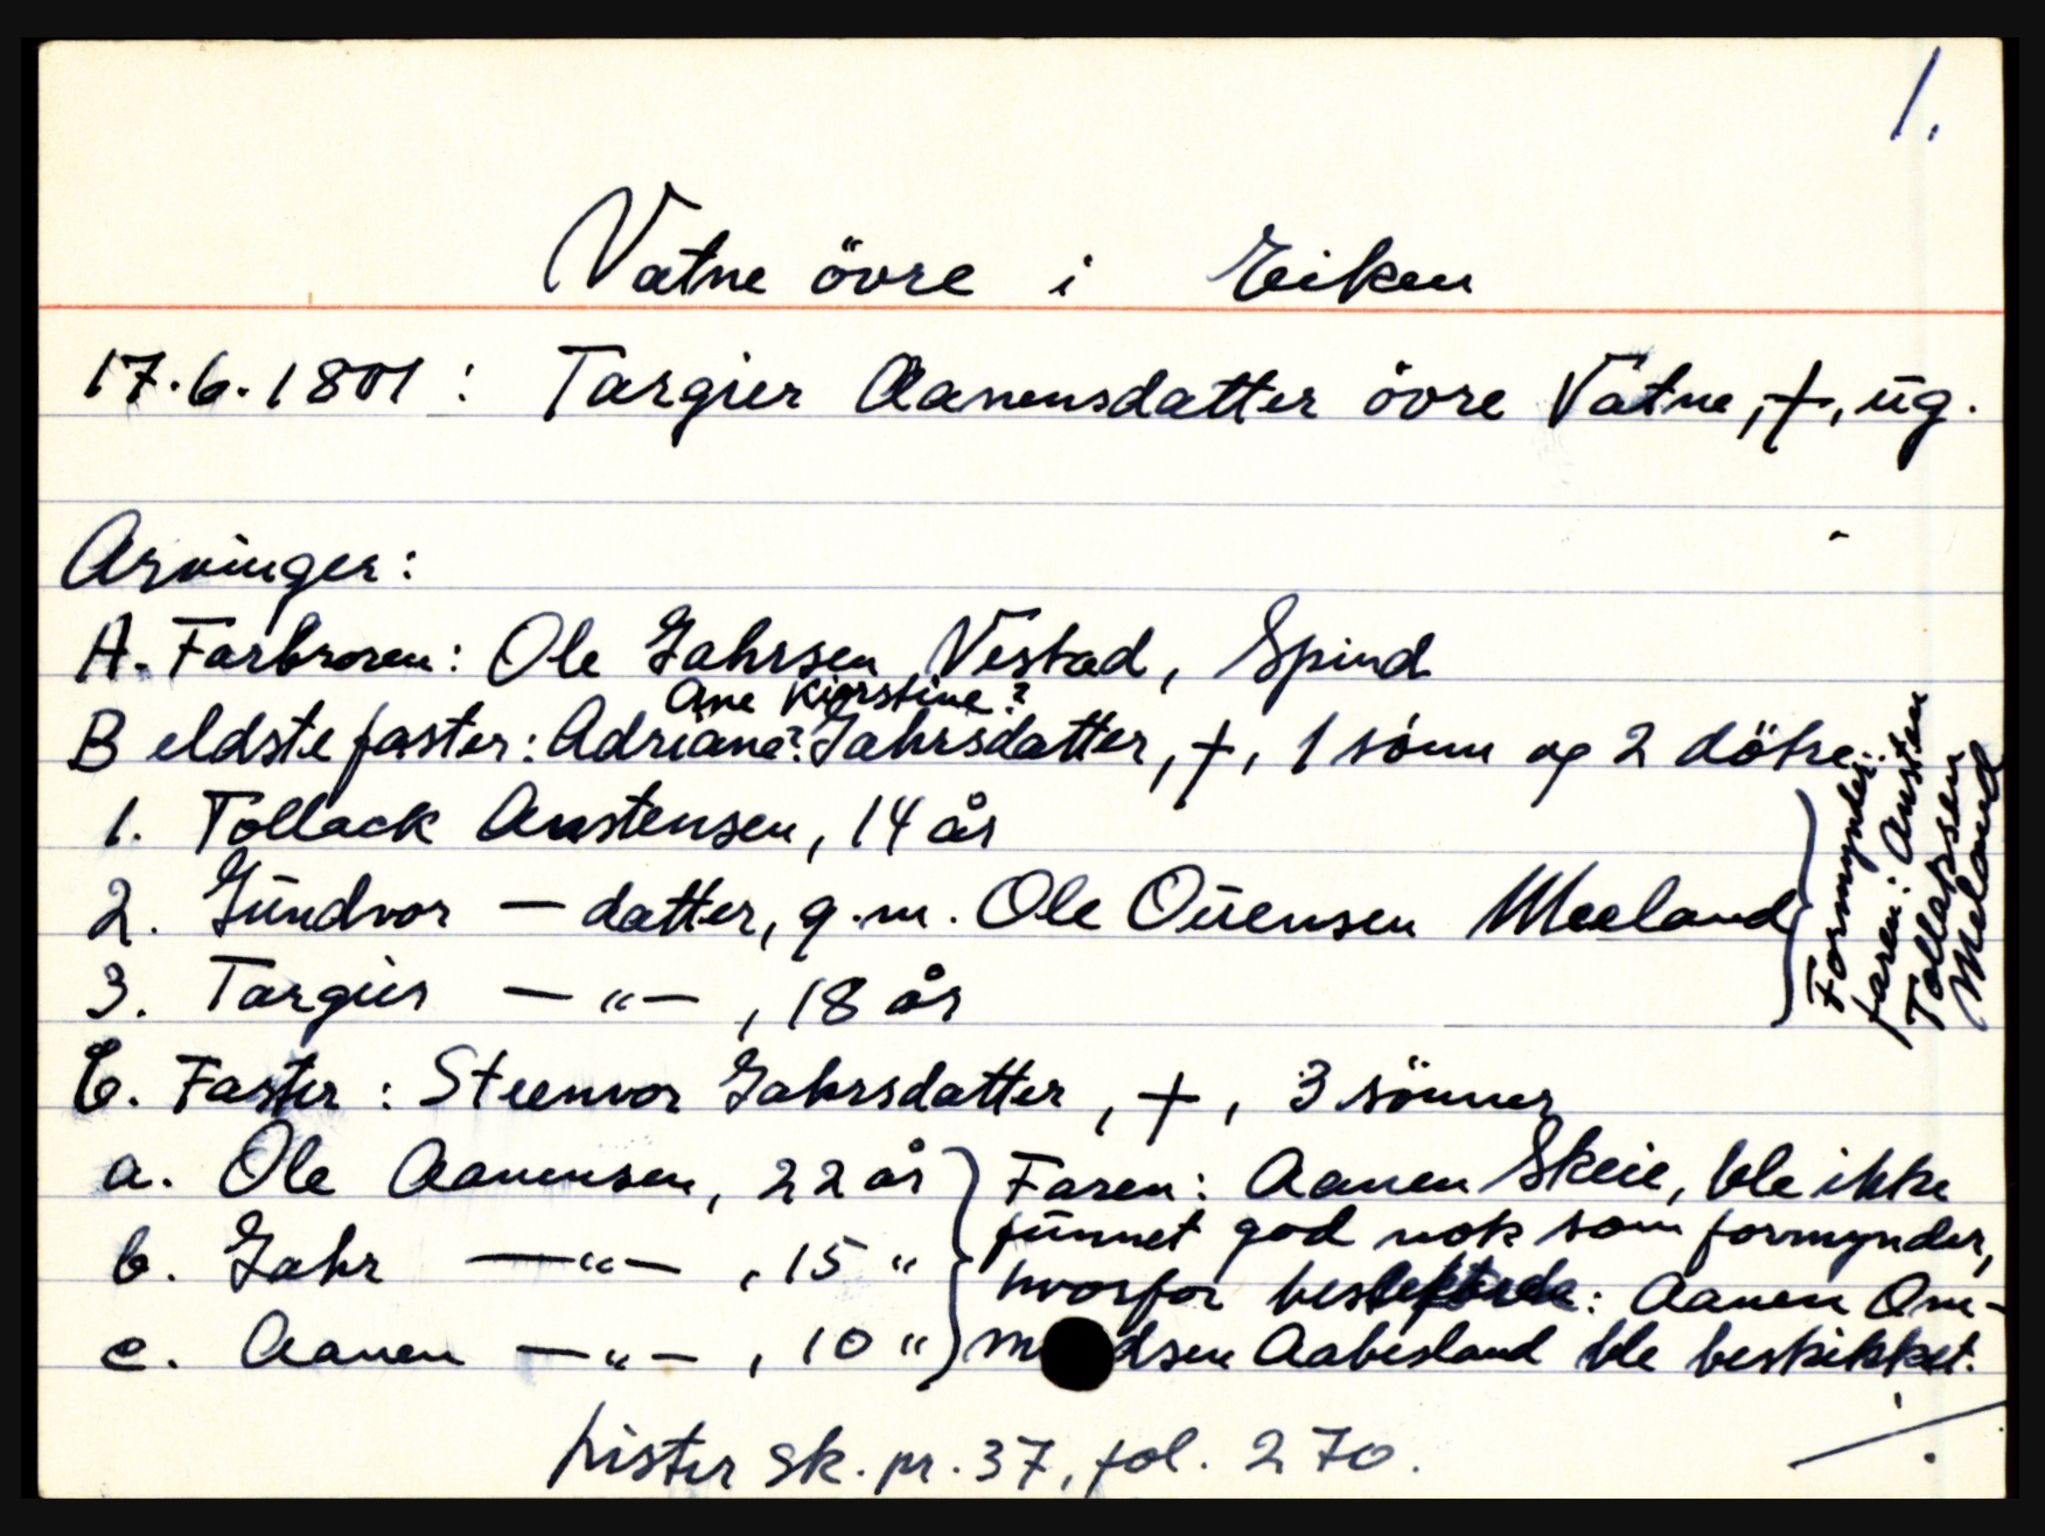 1.
Vatne övre i Eiken
17.6.1801: Targier Aanensdatter övre Vatne, +, ug.
Arvinger:
A. Farbroren: Ole Jahrsen Vestad, Spind
Ane Kierstine?
B eldste faster: Adriane? Jahrsdatter, +, 1 sönn og 2 dötre.
1. Tollack Anstensen, 14 år
2. Gundvor — datter, g.m. Ole Ouensen Meeland
3. Targier — „ — , 18 år
Formynder:
faren: Ansten
Tollaksen
Meland
C. Faster: Steenvor Jahrsdatter, +, 3 sönner
a. Ole Aanensen, 22 år
b. Jahr — „ — , 15 "
c. Aanen — „ — , 10 "
Faren: Aanen Skeie, ble ikke
funnet god nok som formynder,
hvorfor : Aanen Om-
m dsen Aabesland ble beskikket.
Lister sk. pr. 37, fol. 270.
./.